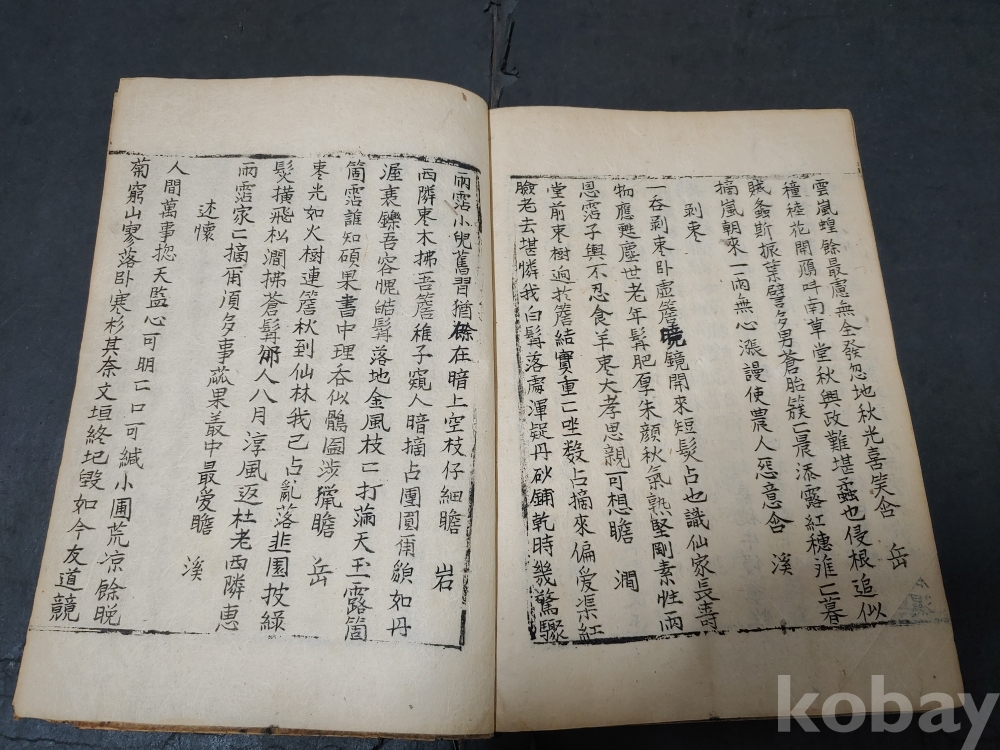 雲嵐蝗餘最慮無全發忽地秋光喜笑含　岳
穜稑花開鴈呌南草堂秋興政難堪蟊也侵根追似
賊螽斯振葉譬多男蒼胎簇簇晨添露紅穗滩滩暮
摘嵐朝來一雨無心漲謾使農人惡意含　溪
剥枣
一吞剥枣卧虚簷曉鏡開來短髮占也識仙家長壽
物應甦塵世老年髯肥厚朱顔秋氣熟堅剛素性雨
恩霑子輿不忍食羊枣大孝思親可想瞻　澗
堂前枣樹逈於簷結實重重坐数占摘來偏爱渠紅
臉老去堪憐我白髯落處渾疑丹砂鋪乾時幾驚驟
雨霑小兒舊習猶餘在暗上空枝仔細瞻　岩
西隣枣木拂吾簷稚子窺人暗摘占團圓甫貌如丹
渥衰鑠吾容愧皓髯落地金風枝枝打滿天玉露箇
箇霑誰知碩果書中理吞似鶻圇涉獵瞻　岳
枣光如火樹連簷秋到仙林我已占亂落韭園披綠
髮橫飛松澗拂蒼髯邠人八月淳風返杜老西隣惠
雨霑家家摘甫須多事蓏果叢中最爱瞻　溪
述懷
人間萬事揔天監心可明二口可緘小圃荒凉餘晚
菊窮山寥落卧寒杉其奈文垣終圮毁如今友道競
kobay